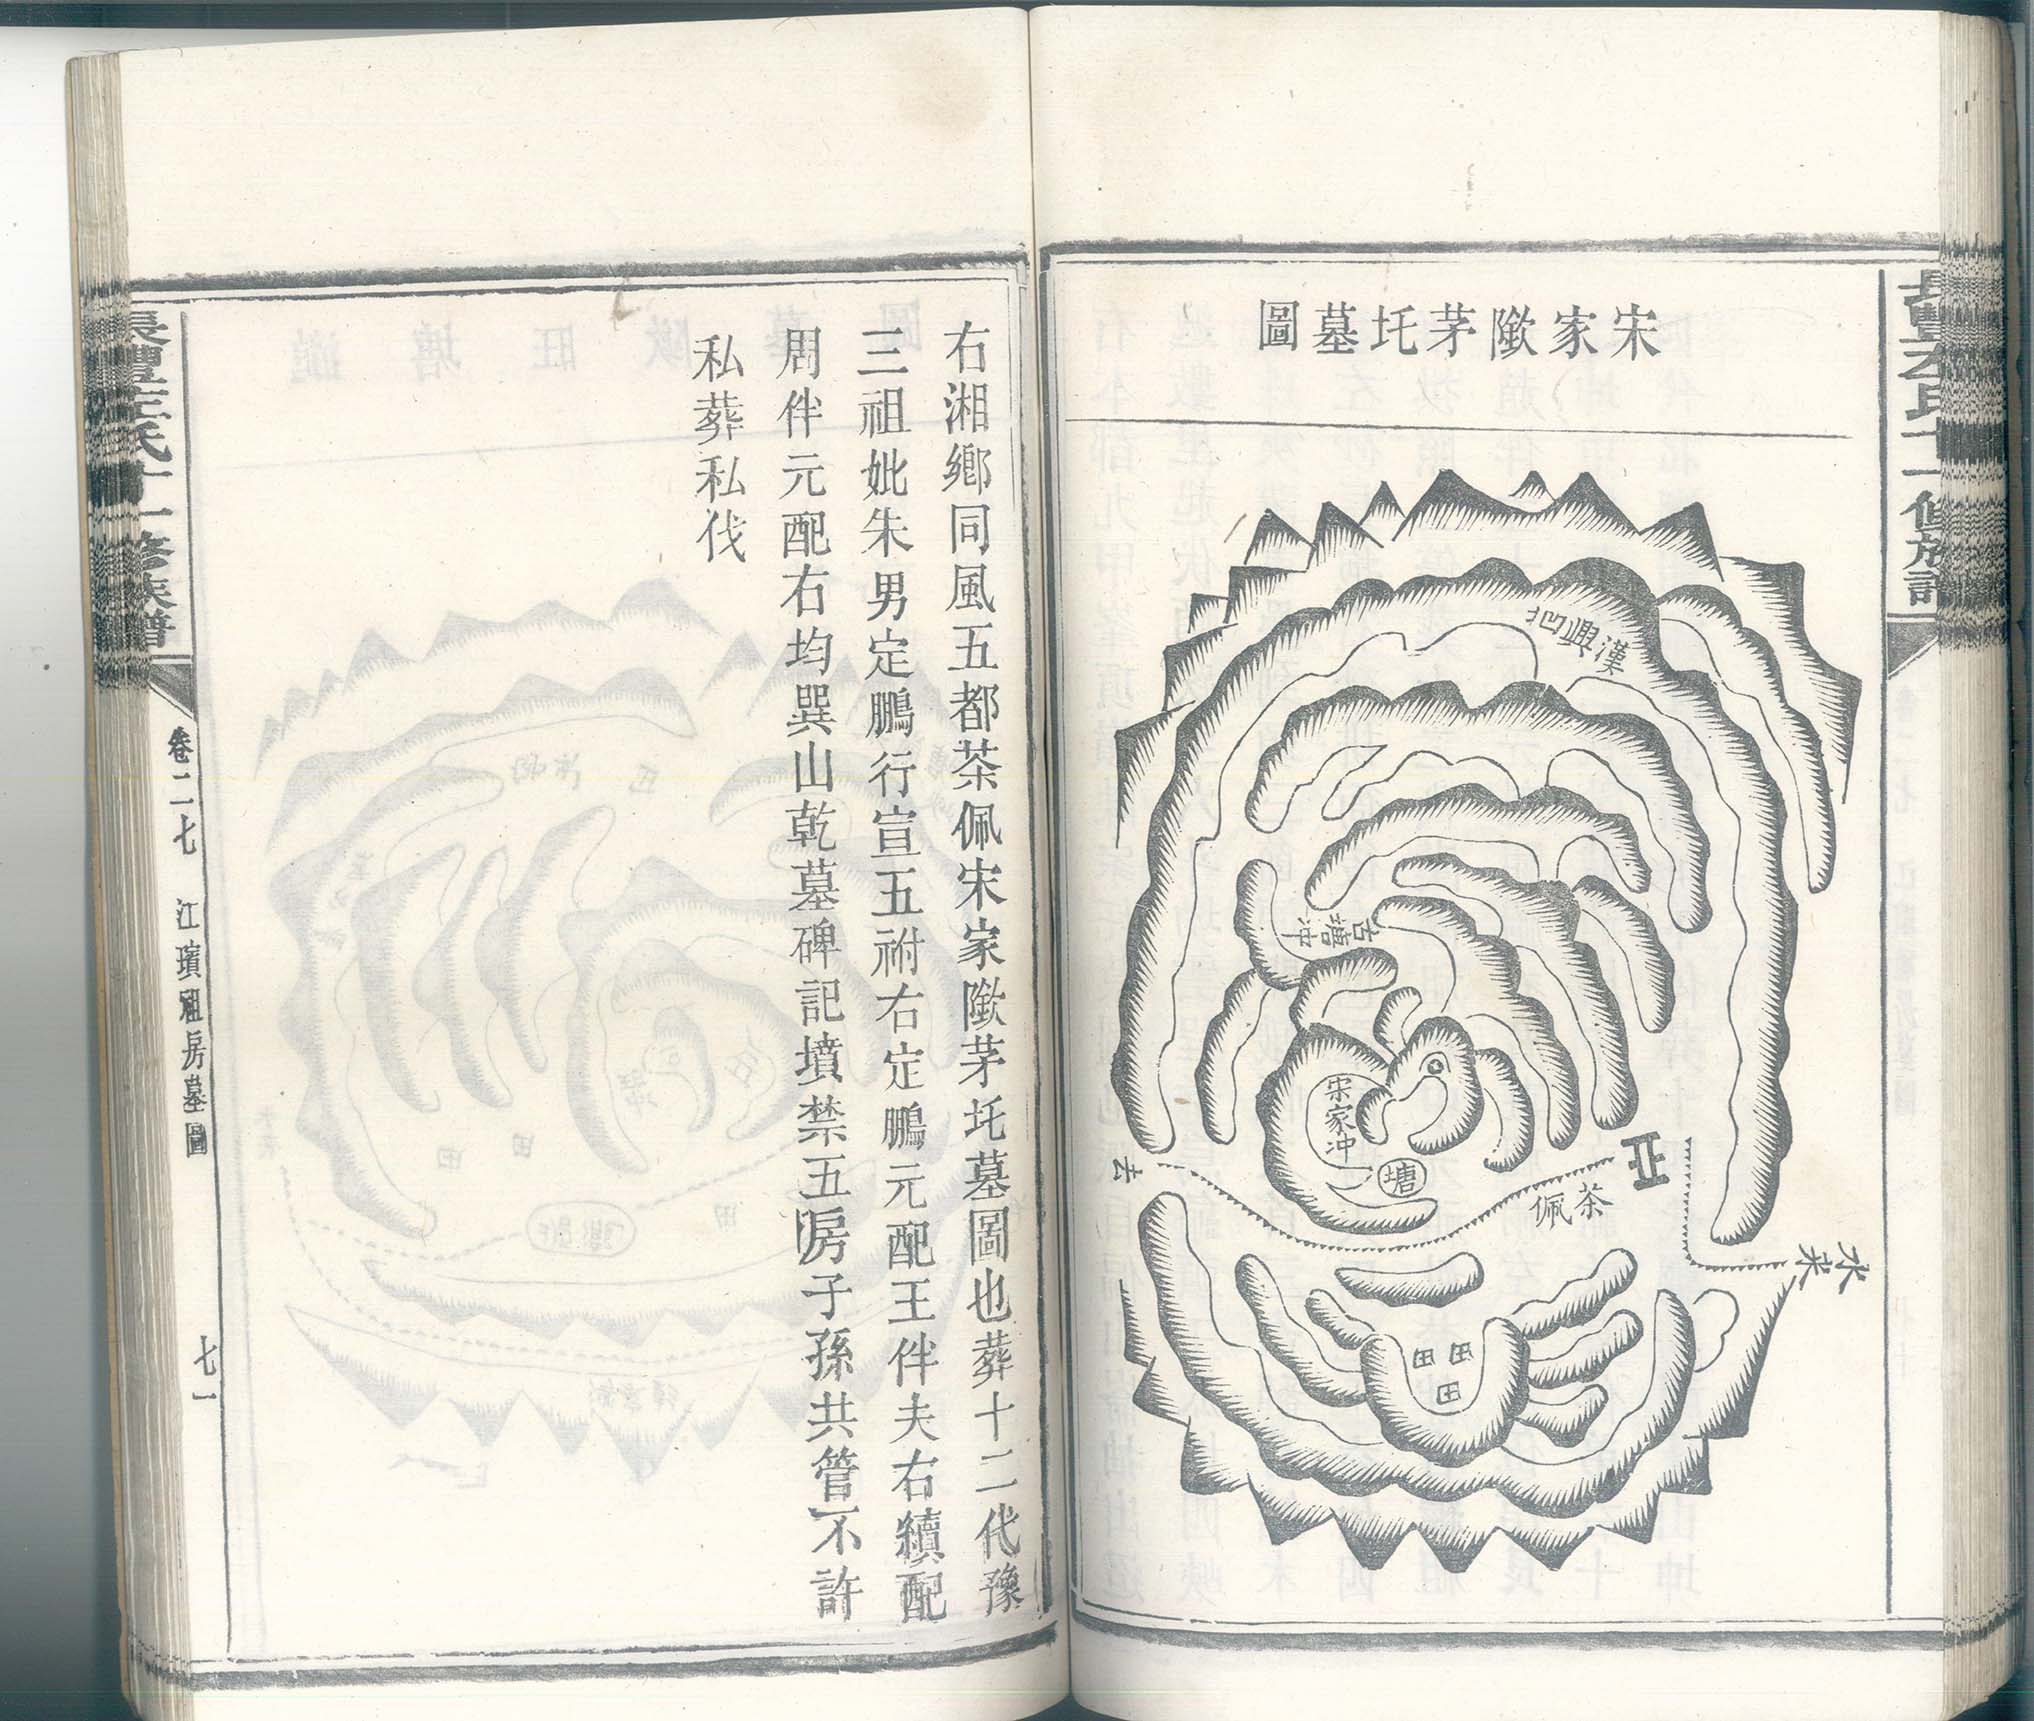 宋家陇茅圫墓圖
漢興凹
古塘冲
宋家冲
塘
茶佩
水来
去
田
田
田
右湘鄉同風五都茶佩宋家陇茅圫墓圖也葬十二代豫
三祖妣朱男定鵬行宣五祔右定鵬元配王伴夫右續配
周伴元配右均巽山乾墓碑記墳禁五房子孫共管不許
私葬私伐
左氏十一修族譜
卷二七
江璸祖房墓圖
七一